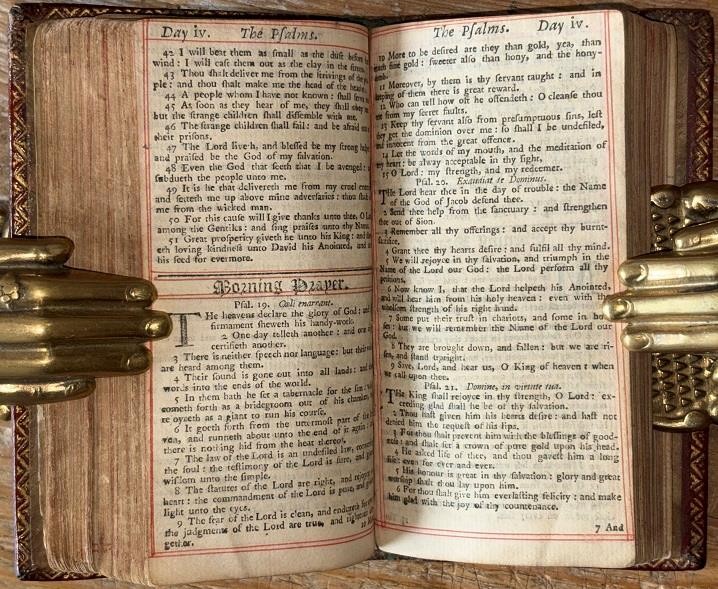 Day iv. The Psalms.
42 I will beat them as small as the dust before
wind: I will cast them out as the clay in the
43 Thou shalt deliver me from the strivings of the
ple: and thou shalt make me the head of the
44 A people whom I have not known: shall
45 As soon as they hear of me, they shall obey
but the strange children shall dissemble with me.
46 The strange children shall fail: and be afraid
their prisons.
47 The Lord liveth, and blessed be my strong
and praised be the God of my salvation.
48 Even the God that seeth that I be avenged:
subdueth the people unto me.
49 It is he that delivereth me from my cruel
and setteth me up above mine adversaries: thou
me from the wicked man.
50 For this cause will I give thanks unto thee, O
among the Gentiles: and sing praises unto thy
51 Great prosperity giveth he unto his King: and
eth loving kindness unto David his Anointed, and
his seed for evermore.
Morning Prayer.
Psal. 19. Cœli enarrant.
THe heavens declare the glory of God: and
firmament sheweth his handy-work.
2 One day telleth another: and one
certifieth another.
3 There is neither speech nor language: but their
are heard among them.
4 Their sound is gone out into all lands: and
words into the ends of the world.
5 In them hath he set a tabernacle for the sun:
cometh forth as a bridegroom out of his chamber,
rejoyceth as a giant to run his course.
6 It goeth forth from the uttermost part of the
ven, and runneth about unto the end of it again:
there is nothing hid from the heat thereof.
7 The law of the Lord is an undefiled law,
the soul: the testimony of the Lord is sure, and
wisdom unto the simple.
8 The statutes of the Lord are right, and rejoyce
heart: the commandment of the Lord is pure, and
light unto the eyes.
9 The fear of the Lord is clean, and endureth for
the judgments of the Lord are true, and righteous
gether.
The Psalms. Day iv.
10 More to be desired are they than gold, yea, than
much fine gold: sweeter also than hony, and the hony-
comb.
11 Moreover, by them is thy servant taught: and in
keeping of them there is great reward.
12 Who can tell how oft he offendeth: O cleanse thou
me from my secret faults.
13 Keep thy servant also from presumptuous sins, lest
they get the dominion over me: so shall I be undefiled,
and innocent from the great offence.
14 Let the words of my mouth, and the meditation of
my heart: be alway acceptable in thy sight,
15 O Lord: my strength, and my redeemer.
Psal. 20. Exaudiat te Dominus.
THe Lord hear thee in the day of trouble: the Name
of the God of Jacob defend thee.
2 Send thee help from the sanctuary: and strengthen
thee out of Sion.
3 Remember all thy offerings: and accept thy burnt-
sacrifice.
4 Grant thee thy hearts desire: and fulfil all thy mind.
5 We will rejoyce in thy salvation, and triumph in the
Name of the Lord our God: the Lord perform all thy
petitions.
6 Now know I, that the Lord helpeth his Anointed,
and will hear him from his holy heaven: even with the
wholsom strength of his right hand.
7 Some put their trust in chariots, and some in hor-
ses: but we will remember the Name of the Lord our
God.
8 They are brought down, and fallen: but we are ri-
sen, and stand upright.
9 Save, Lord, and hear us, O King of heaven: when
we call upon thee.
Psal. 21. Domine, in virtute tua.
THe King shall rejoyce in thy strength, O Lord: ex-
ceeding glad shall he be of thy salvation.
2 Thou hast given him his hearts desire: and hast not
denied him the request of his lips.
3 For thou shalt prevent him with the blessings of good-
ness: and shalt set a crown of pure gold upon his head.
4 He asked life of thee, and thou gavest him a long
life: even for ever and ever.
5 His honour is great in thy salvation: glory and great
worship shalt thou lay upon him.
6 For thou shalt give him everlasting felicity: and make
him glad with the joy of thy countenance.
7 And